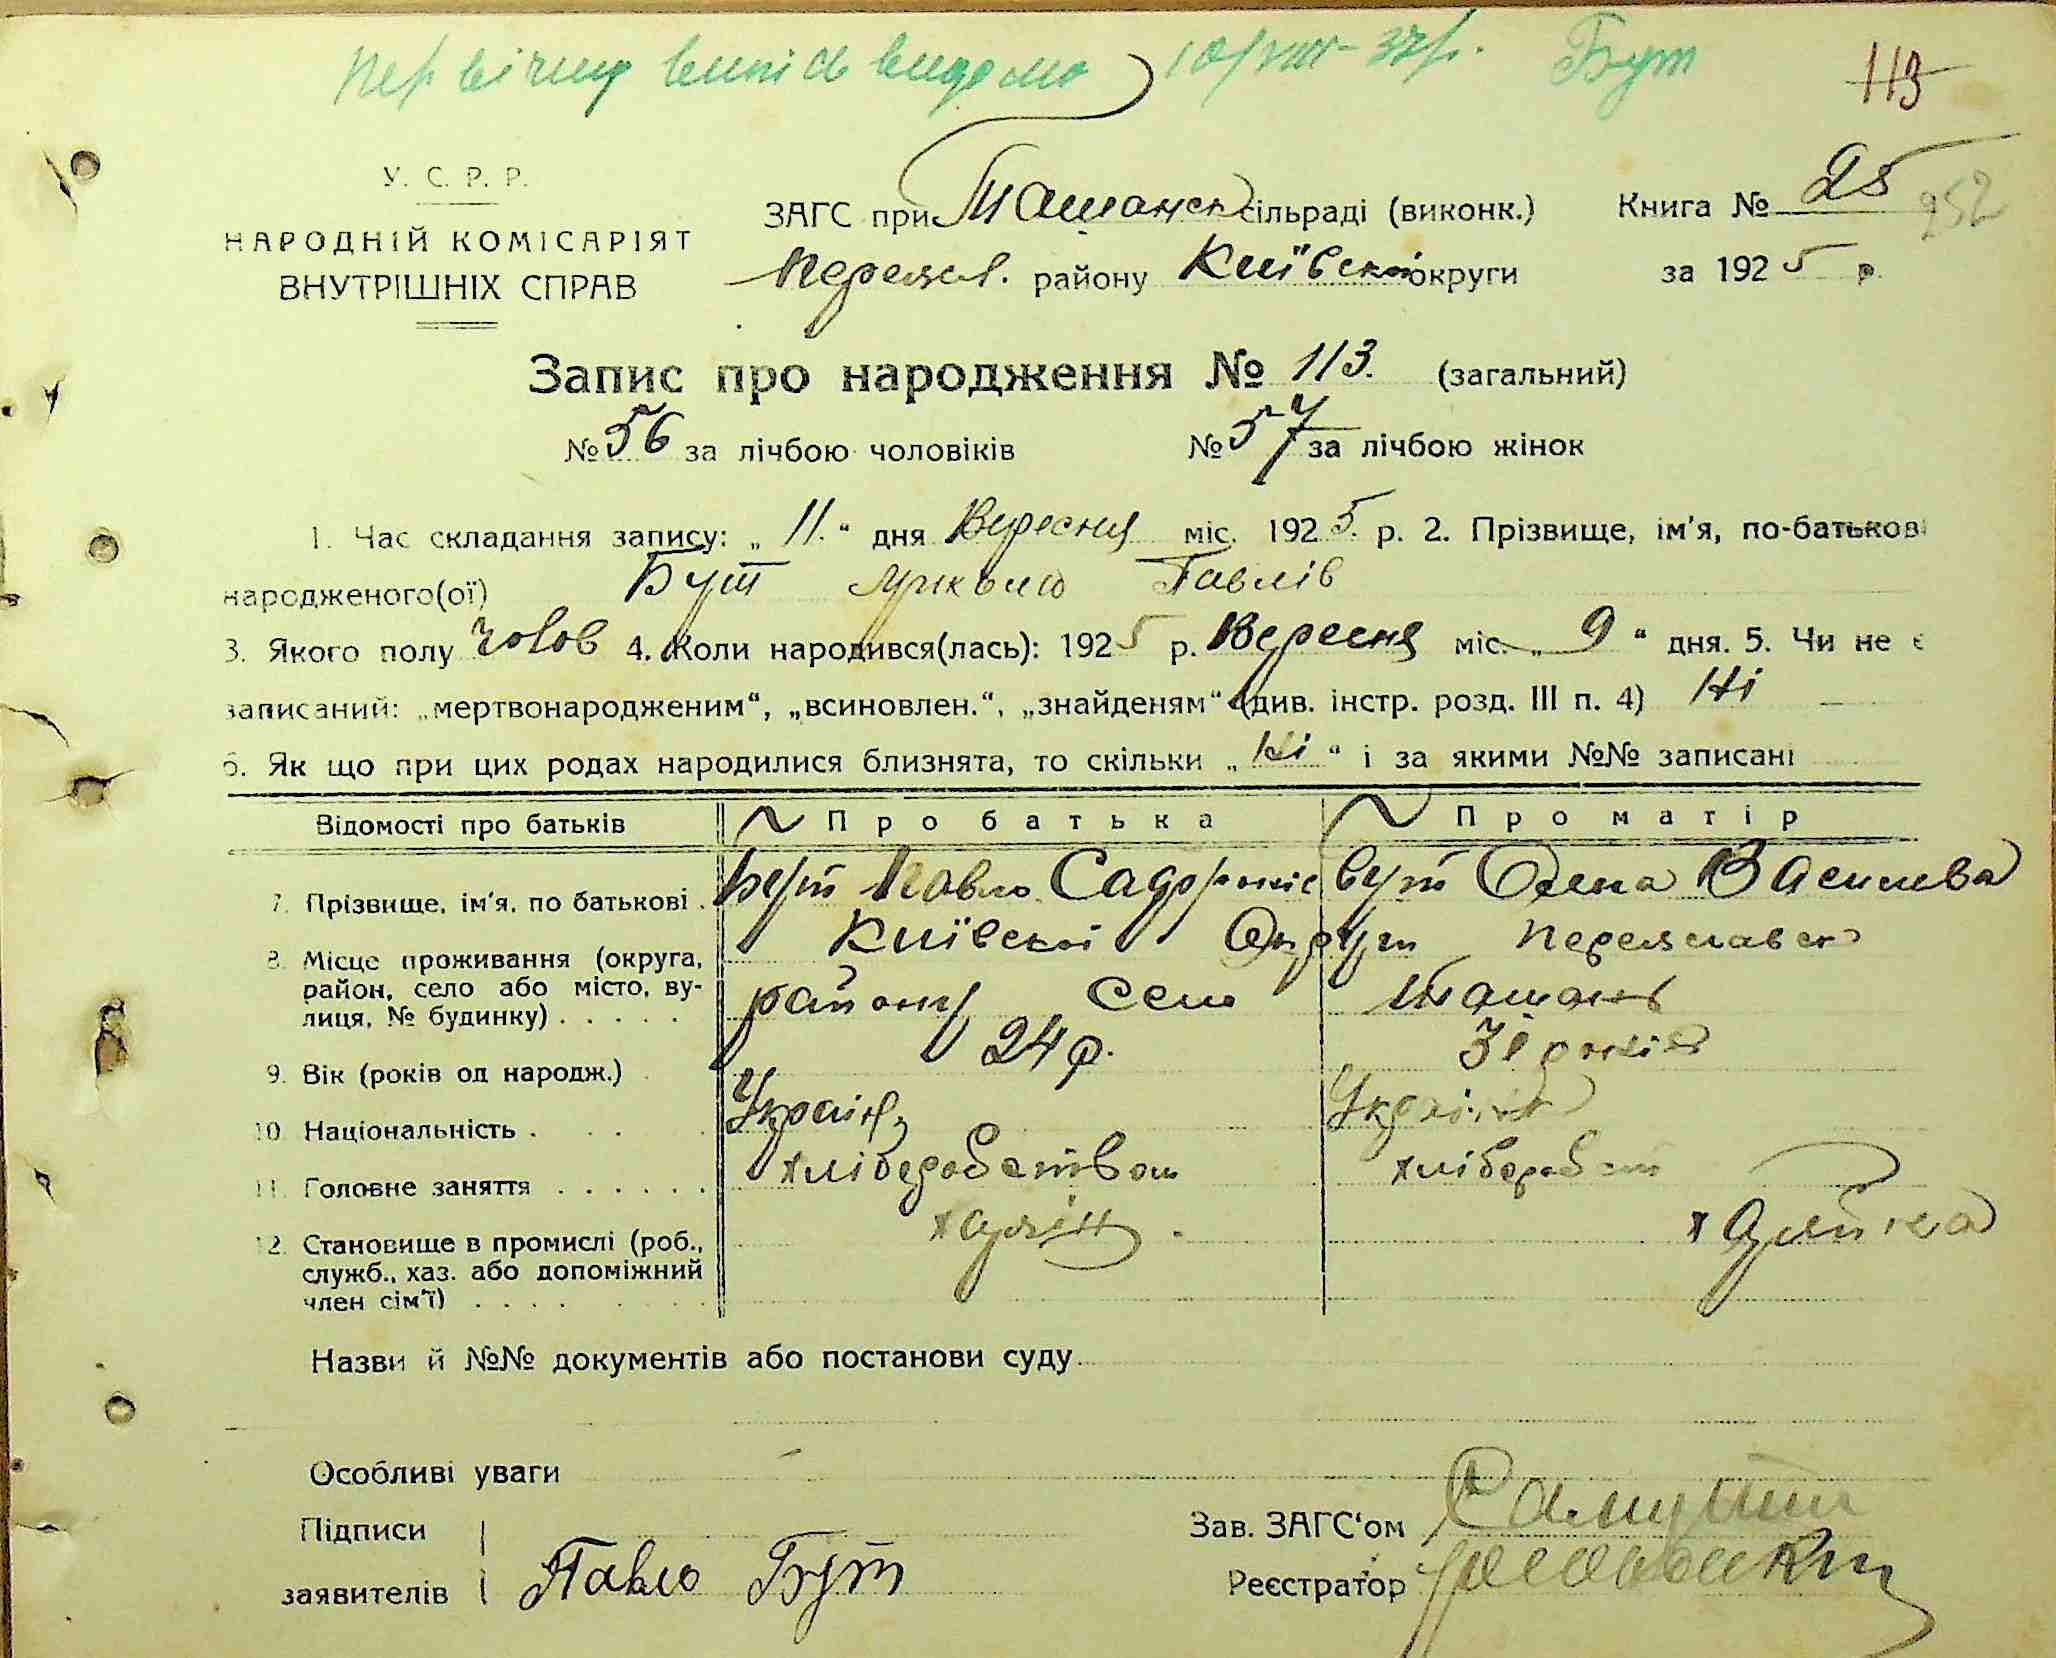 первічну випісь видано 10/VIII-37р. Бут
113
У. С. Р. Р.
НАРОДНІЙ КОМІСАРІЯТ
ВНУТРІШНІХ СПРАВ
ЗАГС при Ташанск сільраді (виконк.) Книга № 25 252
Переясл. району Київської округи за 1925 р.
Запис про народження № 113. (загальний)
№ 56 за лічбою чоловіків № 57 за лічбою жінок
1. Час складання запису: „ 11. “ дня Вересня міс. 1925. р. 2. Прізвище, ім'я, по-батькові
народженого(ої) Бут Павлів
3. Якого полу чолов 4. Коли народився(лась): 1925 р. Вересня міс. „ 9 “ дня. 5. Чи не є
записаний: „мертвонародженим“, „всиновлен.“, „знайденям“ (див. інстр. розд. III п. 4) Ні
6. Як що при цих родах народилися близнята, то скільки „ Ні “ і за якими №№ записані
Відомості про батьків Про батька Про матір
7. Прізвище, ім'я, по батькові . Бут Павло Бут Олена Василева
8. Місце проживання (округа, район, село або місто, вулиця, № будинку) . . . . . Київської Округи Переяславск
району Село Ташань
9. Вік (років од народж.) 24 р. 31 років
10. Національність . . . Україн. Україн
11. Головне заняття . . . . . . хліборобством хлібороб
12. Становище в промислі (роб., служб., хаз. або допоміжний член сім'ї) . . . . хазяїн . хазяйка
Назви й №№ документів або постанови суду
Особливі уваги
Підписи
заявителів Павло Бут
Зав. ЗАГС'ом
Реєстратор